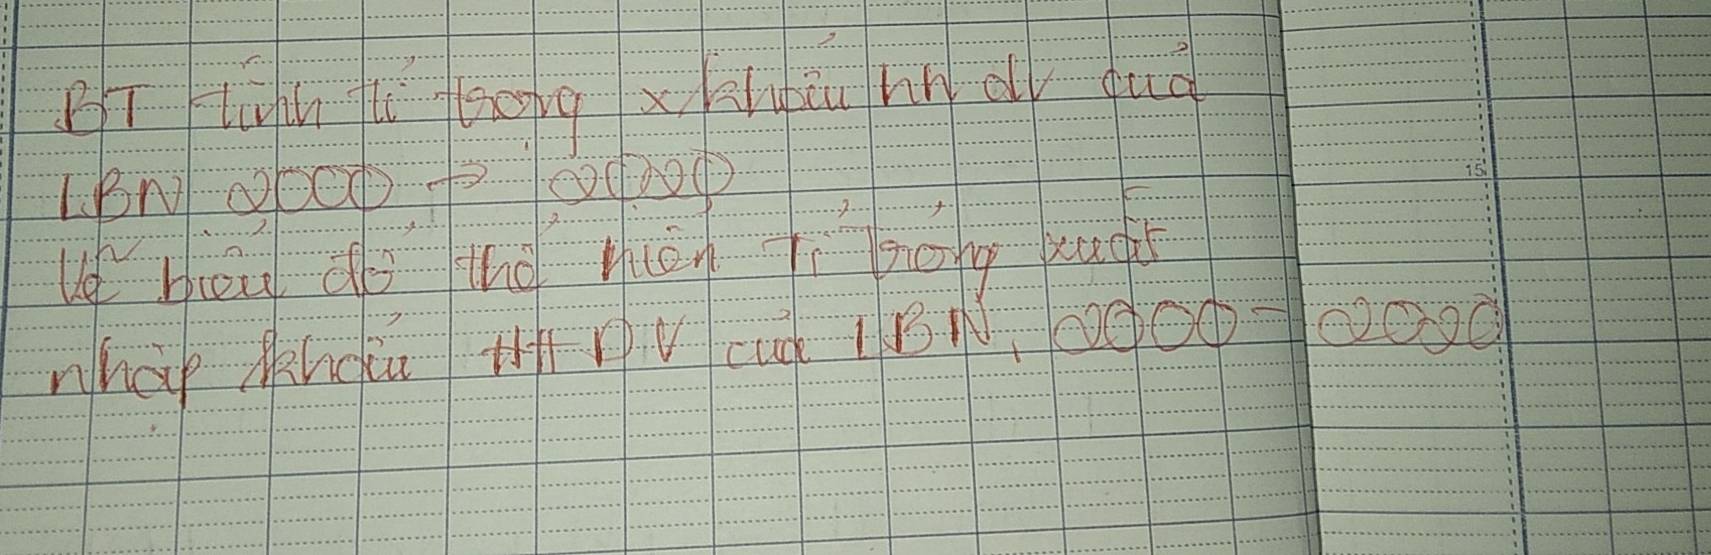 BT tính tỉ trọng x khẩu hh dv của
LBN 2000 → 2020
Vẽ biểu đồ thể hiện Tỉ trọng xuất
nhập khẩu HH DV của LBN, 2000 - 2020
15